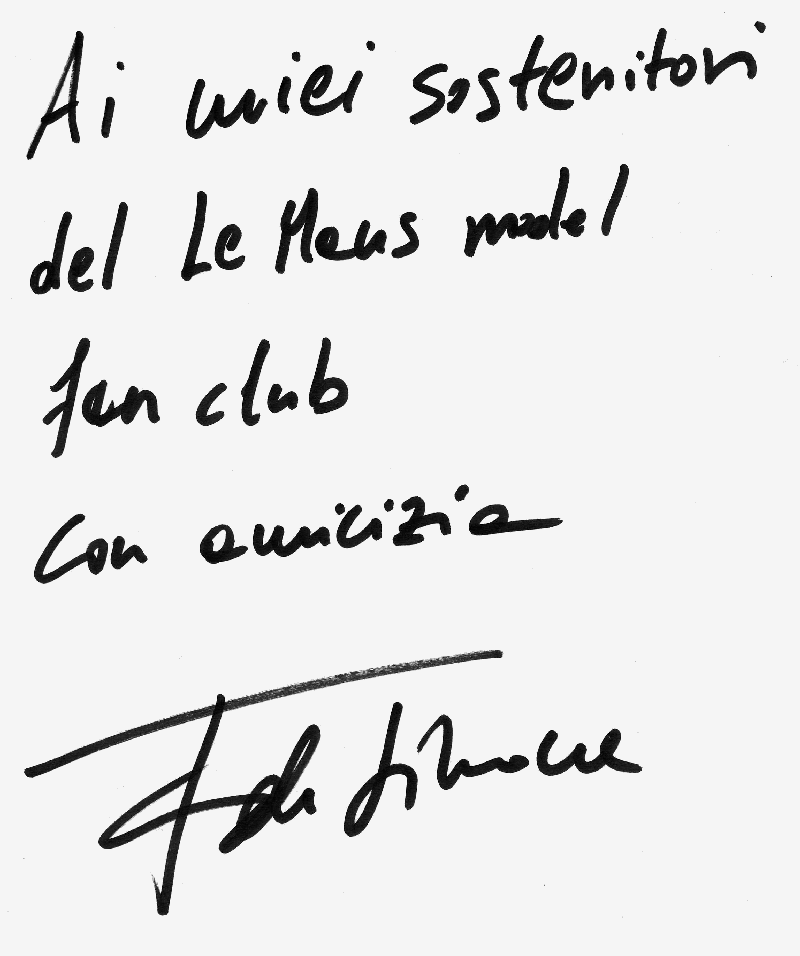 Ai miei sostenitori
del Le Mans model
fan club
con amicizia
de Simone